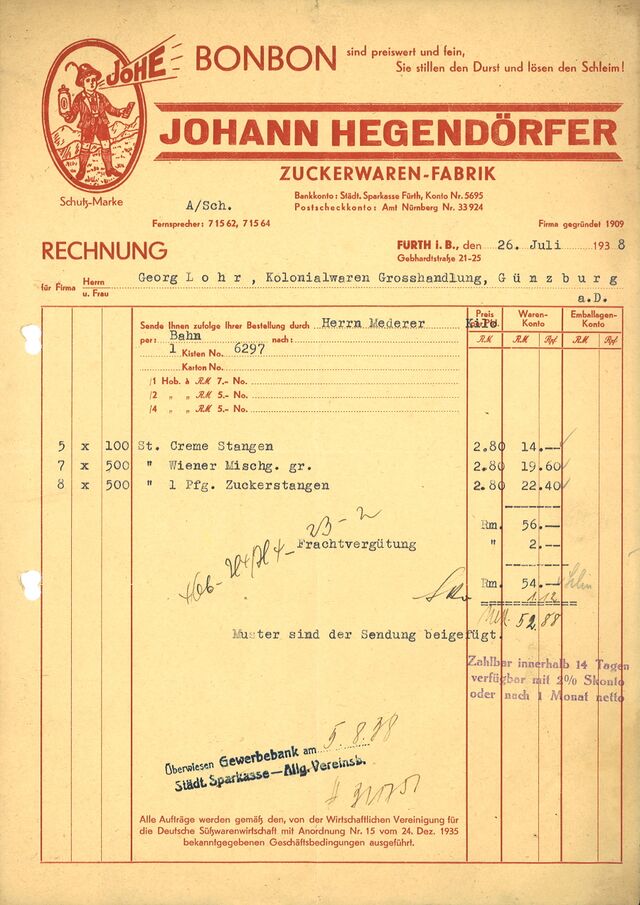 JOHE BONBON sind preiswert und fein,
Sie stillen den Durst und lösen den Schleim!
JOHANN HEGENDÖRFER
ZUCKERWAREN-FABRIK
Schutz-Marke
Bankkonto: Städt. Sparkasse Fürth, Konto Nr. 5695
A/Sch.
Postscheckkonto: Amt Nürnberg Nr. 33 924
Fernsprecher: 7 15 62, 7 15 64
Firma gegründet 1909
RECHNUNG
FURTH i. B., den 26. Juli 1938
Gebhardtstraße 21-25
für Firma Herrn u. Frau Georg Lohr, Kolonialwaren Grosshandlung, Günzburg
a.D.
Sende Ihnen zufolge Ihrer Bestellung durch Herrn Mederer
Preis Kilo Waren-Konto Emballagen-Konto
per: Bahn nach:
RM RM Rpf. RM Rpf.
1 Kisten No. 6297
Karton No.
/1 Hob. à RM 7.- No.
/2 " " RM 5.- No.
/4 " " RM 5.- No.
5 x 100 St. Creme Stangen 2.80 14.--
7 x 500 " Wiener Mischg. gr. 2.80 19.60
8 x 500 " 1 Pfg. Zuckerstangen 2.80 22.40
Rm. 56.--
Frachtvergütung " 2.--
23-2
Rm. 54.--
1.12
52.88
Muster sind der Sendung beigefügt.
Zahlbar innerhalb 14 Tagen
verfügbar mit 2% Skonto
oder nach 1 Monat netto
Überwiesen Gewerbebank am 5.8.38
Städt. Sparkasse—Allg. Vereinsb.
Alle Aufträge werden gemäß den, von der Wirtschaftlichen Vereinigung für
die Deutsche Süßwarenwirtschaft mit Anordnung Nr. 15 vom 24. Dez. 1935
bekanntgegebenen Geschäftsbedingungen ausgeführt.